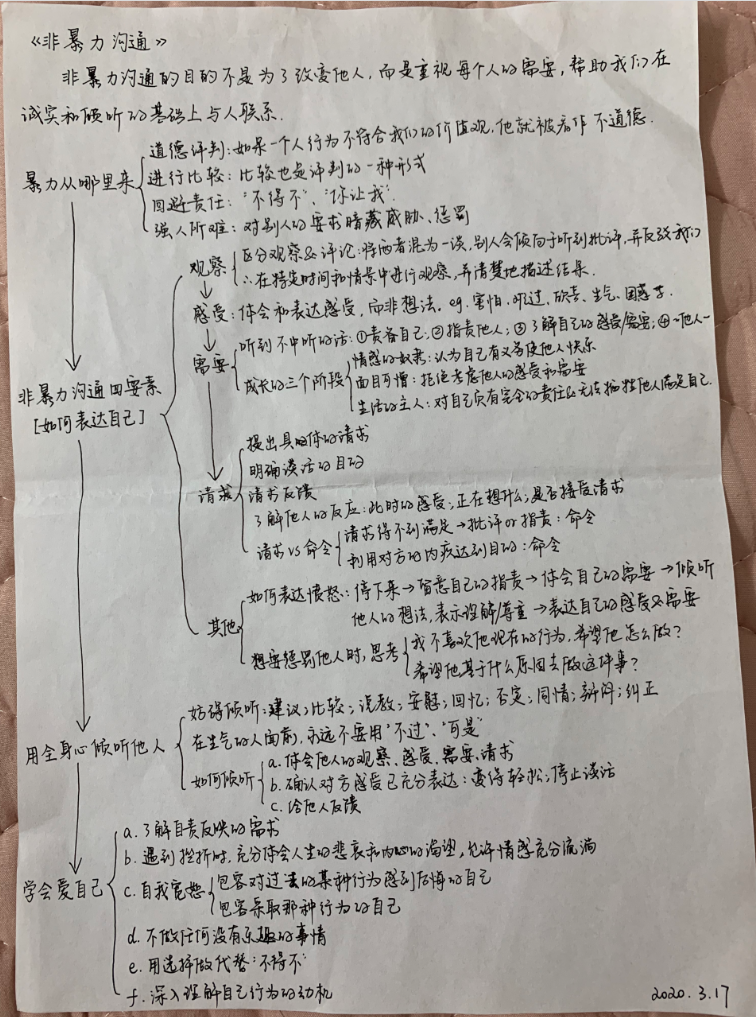 《非暴力沟通》
非暴力沟通的目的不是为了改变他人，而是重视每个人的需要，帮助我们在
诚实和倾听的基础上与人联系.
暴力从哪里来
道德评判：如果一个人行为不符合我们的价值观，他就被看作不道德.
进行比较：比较也是评判的一种形式
回避责任：“不得不”、“你让我”.
强人所难：对别人的要求暗藏威胁、惩罚
非暴力沟通四要素
[如何表达自己]
观察
区分观察&评论：将两者混为一谈，别人会倾向于听到批评，并反驳我们
∴在特定时间和情景中进行观察，并清楚地描述结果.
感受：体会和表达感受，而非想法. eg. 害怕、欣喜、生气、困惑等.
需要
听到不中听的话：①责备自己；②指责他人；③了解自己的感受/需要；④~他人~
成长的三个阶段
情感的奴隶：认为自己有义务使他人快乐
面目可憎：拒绝考虑他人的感受和需要
生活的主人：对自己负有完全的责任&无法牺牲他人满足自己.
请求
提出具体的请求
明确谈话的目的
请求反馈
了解他人的反应：此时的感受；正在想什么；是否接受请求
请求vs命令
请求得不到满足→批评or指责：命令
利用对方的内疚达到目的：命令
其他
如何表达愤怒：停下来→留意自己的指责→体会自己的需要→倾听
他人的想法，表示理解/尊重→表达自己的感受&需要
想要惩罚他人时，思考
我不喜欢他现在的行为，希望他怎么做？
希望他基于什么原因去做这件事？
用全身心倾听他人
妨碍倾听：建议；比较；说教；安慰；回忆；否定；同情；辩问；纠正
在生气的人面前，永远不要用“不过”、“可是”
如何倾听
a. 体会他人的观察、感受、需要、请求
b. 确认对方感受已充分表达：变得轻松；停止谈话
c. 给他人反馈
学会爱自己
a. 了解自责反映的需求
b. 遇到挫折时，充分体会人生的悲哀和内心的渴望，允许情感充分流淌
c. 自我宽恕
包容对过去的某种行为感到后悔的自己
包容采取那种行为的自己
d. 不做任何没有乐趣的事情
e. 用选择做代替“不得不”
f. 深入理解自己行为的动机
2020.3.17